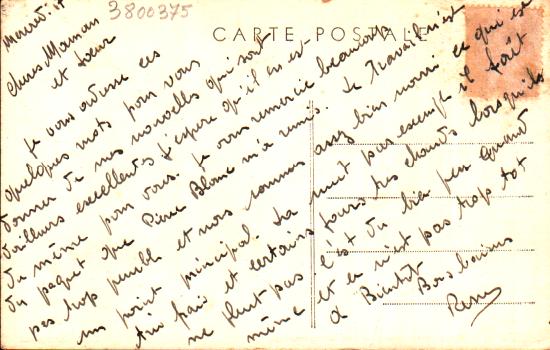 3800375
CARTE POSTALE
Mourèt. le
Chères Maman
et Soeur
Je vous adresse ces
quelques mots pour vous
donner de mes nouvelles qui sont
d'ailleurs excellentes j'espère qu'il en est
du même pour vous. Je vous remercie beaucoup
du paquet que Pierre Blanc m'a remis. Le travail n'est
pas trop pénible et nous sommes assez bien nourri ce qui est
un point principal. La nuit par exempt il fait
très frais et certains jours très chauds lorsqu'ils
ne pleut pas c'est du bien peu quand
même et en n'est pas trop tot
a Bientôt
Bons baisers